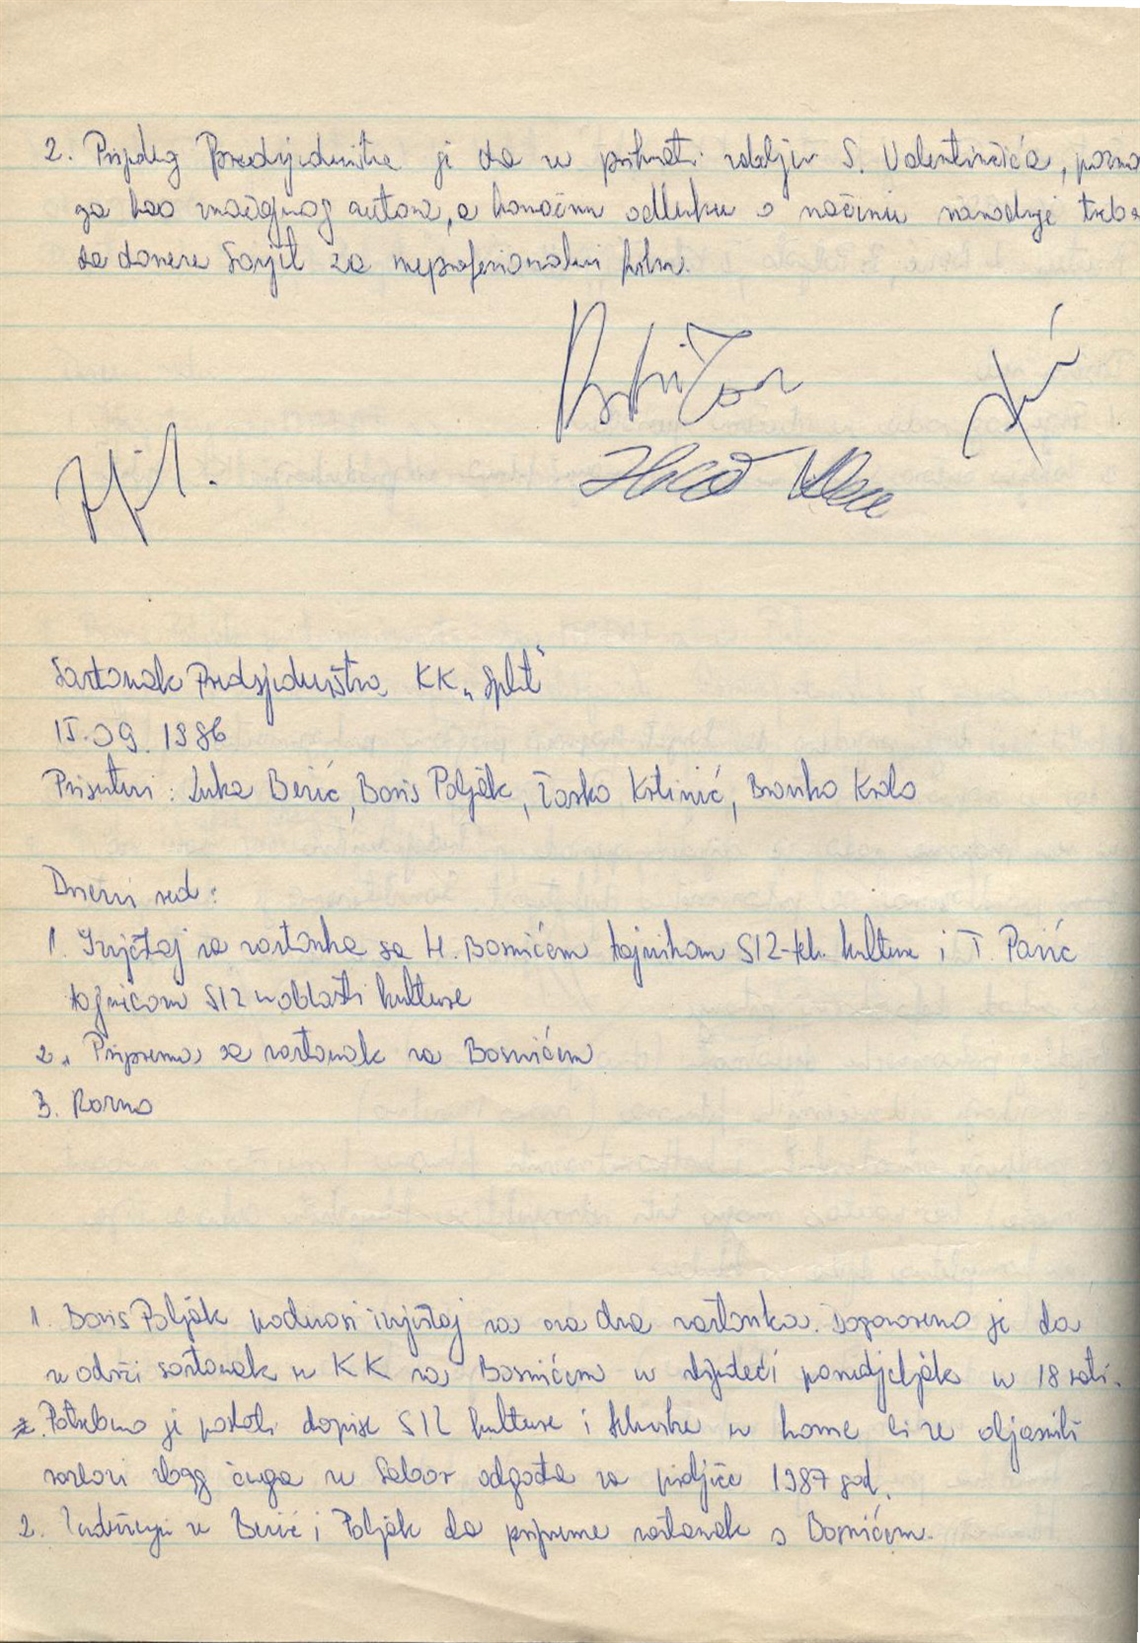 2. Prijedlog Predsjedništva je da se prihvati zahtjev S. Valentinčića,
ga kao značajnog autora, a konačnu odluku o načinu nagradnje treba
da donese Savjet za neprofesionalni film.
Sastanak Predsjedništva KK "Split"
15.09.1986
Prisutni: Luka Berić, Boris Poljak, Žarko Krstinić, Branko Kralo
Dnevni red:
1. Izvještaj sa sastanka sa H. Bosnićem tajnikom SIZ-teh. kulture i T. Parić
tajnicom SIZ u oblasti kulture
2. Priprema za sastanak sa Bosnićem
3. Razno
1. Boris Poljak podnosi izvještaj sa ova dva sastanka. Dogovoreno je da
se održi sastanak u KK sa Bosnićem u slijedeći ponedjeljak u 18 sati.
Potrebno je poslati dopise SIZ kulture i tehnike u kome bi se objasnili
razlozi zbog čega se Sabor odgađa za proljeće 1987 god.
2. Zadužuju se Berić i Poljak da pripreme sastanak s Bosnićem.